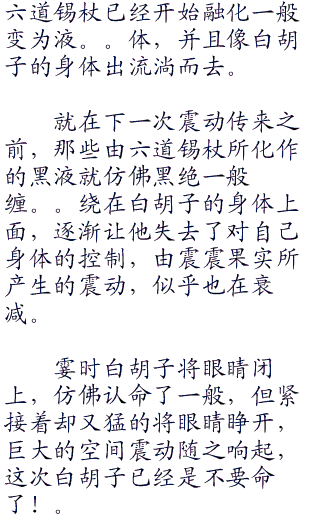 六道锡杖已经开始融化一般
变为液。。体，并且像白胡
子的身体出流淌而去。
就在下一次震动传来之
前，那些由六道锡杖所化作
的黑液就仿佛黑绝一般
缠。。绕在白胡子的身体上
面，逐渐让他失去了对自己
身体的控制，由震震果实所
产生的震动，似乎也在衰
减。
霎时白胡子将眼睛闭
上，仿佛认命了一般，但紧
接着却又猛的将眼睛睁开，
巨大的空间震动随之响起，
这次白胡子已经是不要命
了！。